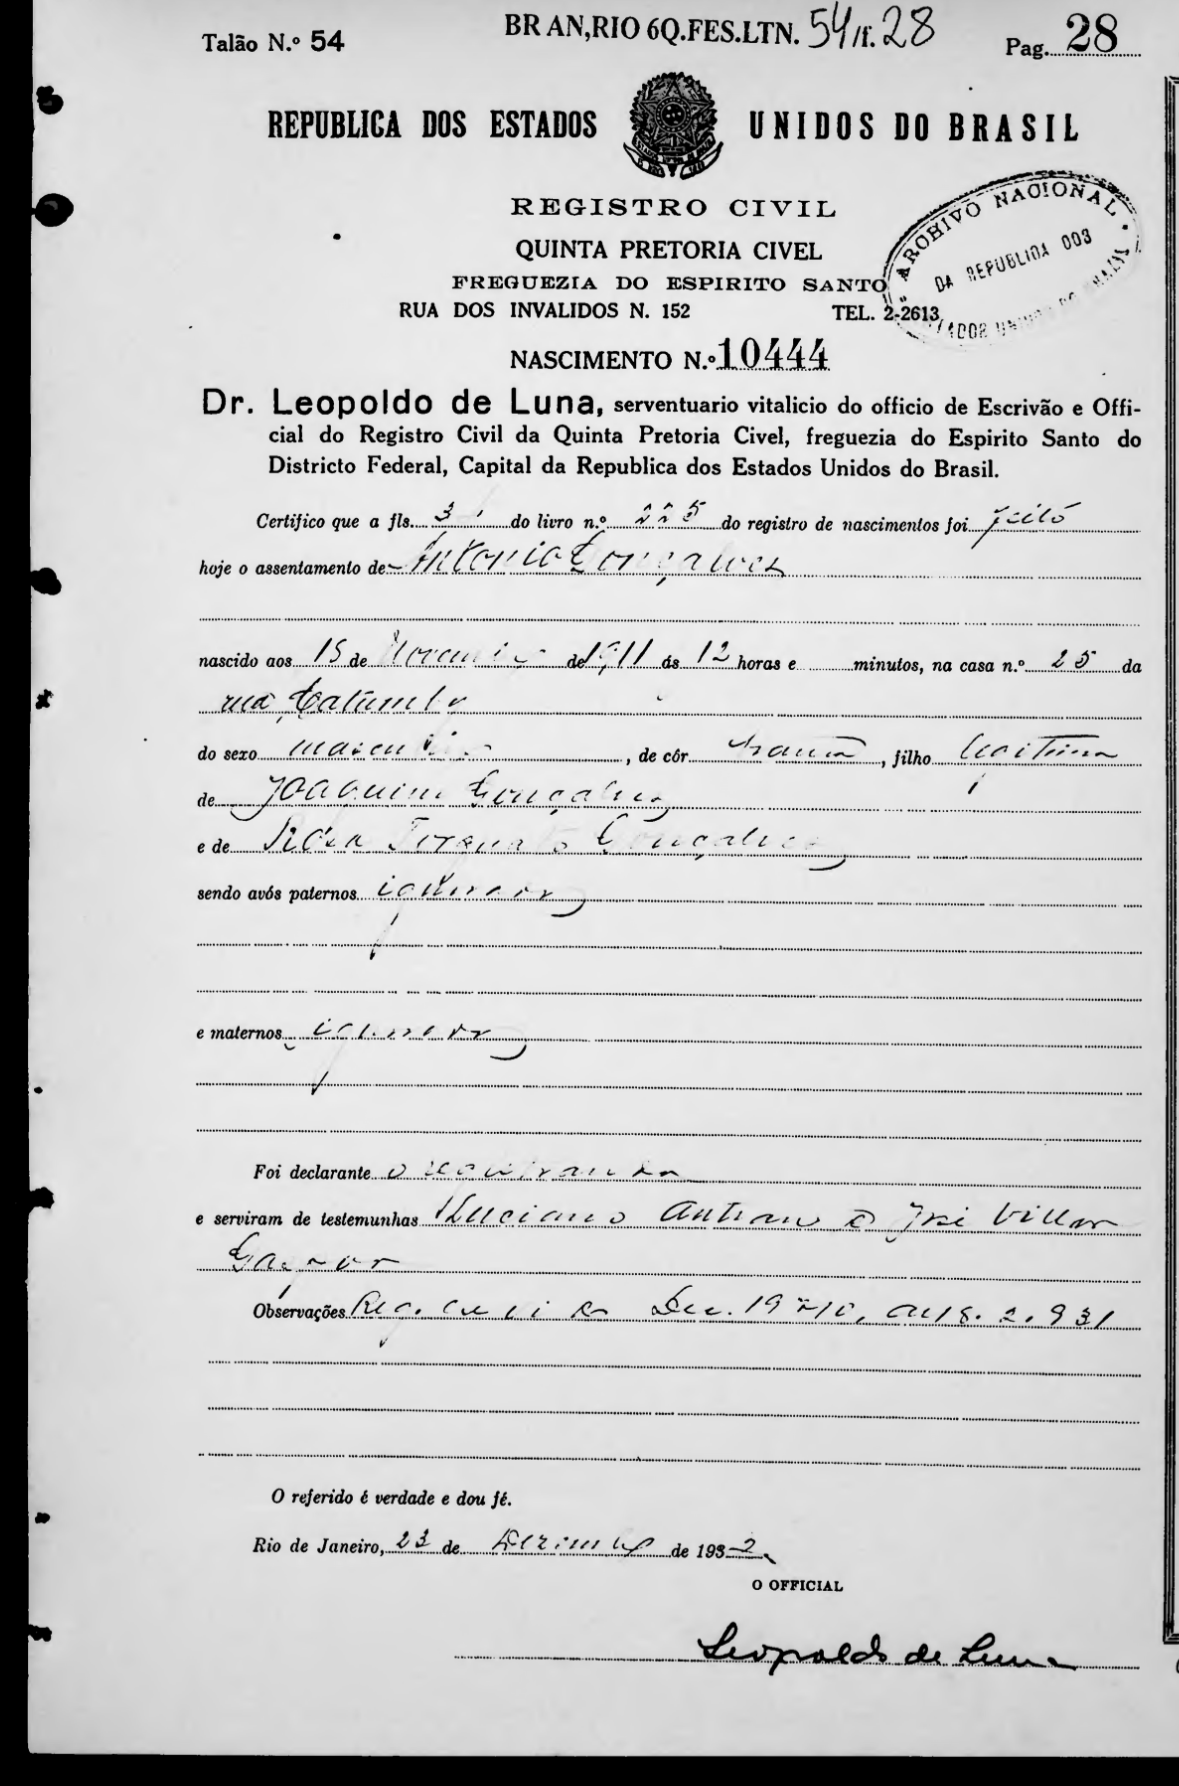 Talão N.º 54
BR AN,RIO 6Q.FES.LTN. 54/f. 28
Pag. 28
REPUBLICA DOS ESTADOS UNIDOS DO BRASIL
REGISTRO CIVIL
QUINTA PRETORIA CIVEL
FREGUEZIA DO ESPIRITO SANTO
RUA DOS INVALIDOS N. 152 TEL. 2-2613
ARCHIVO NACIONAL
DA REPUBLICA 003
NASCIMENTO N.º 10444
Dr. Leopoldo de Luna, serventuario vitalicio do officio de Escrivão e Offi-
cial do Registro Civil da Quinta Pretoria Civel, freguezia do Espirito Santo do
Districto Federal, Capital da Republica dos Estados Unidos do Brasil.
Certifico que a fls. 3 do livro n.º 225 do registro de nascimentos foi feito
hoje o assentamento de Antonio Gonçalves
nascido aos 15 de Novembro de 1911 ás 12 horas e minutos, na casa n.º 25 da
rua Catumby
do sexo masculino, de côr branca, filho legitimo
de Joaquim Gonçalves
e de Rosa Torquato Gonçalves
sendo avós paternos ignora
e maternos ignora
Foi declarante o registrando
e serviram de testemunhas Luciano Antran e José Villar
Observações Reg. Dec. 19710, de 18.2.931
O referido é verdade e dou fé.
Rio de Janeiro, 23 de Dezembro de 1932
O OFFICIAL
Leopoldo de Luna